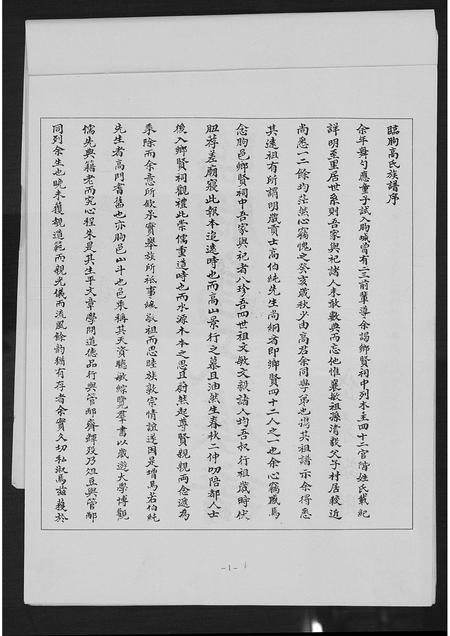 臨朐高氏族譜序
余年舞勺應童子試入朐城嘗有二三前輩導余謁鄉賢祠中列木主四十二官階姓氏載紀
詳明至里居世系則吾家與祀諸人未敢數典而忘他惟襄敏祖孫清毅父子村居較近
尚悉一二餘均茫然心竊愧之癸亥歲秋少由高君余同學弟也攜其祖譜示余得悉
其遠祖有所謂明歲貢士高伯純先生尚絅者即鄉賢四十二人之一也余心竊感焉
念朐邑鄉賢祠中吾家與祀者八珍吾四世祖文敏文毅諸人均吾叔行祖歲時伏
臘荐羞廟寢此報本追遠時也而高山景行之慕且油然生春秋二仲叨陪都人士
後入鄉賢祠觀禮此崇儒重道時也而水源木本之思直蔚然起尊賢親親兩念遞為
乘除而余意所欽承實舉族所祗事緣敬祖而思睦族敦宗情誼遂因是增焉若伯純
先生者高門耆舊也亦朐邑山斗也邑乘稱其天資聰敏綜覽羣書以歲遊大學博觀
儒先典籍老而究心程朱是其生平文章學問道德品行與管邴齊驅殁乃俎豆與管邴
同列余生也晚未獲親道範而親光儀而流風餘韵猶有存者余實久切私淑焉茲獲於
-1-